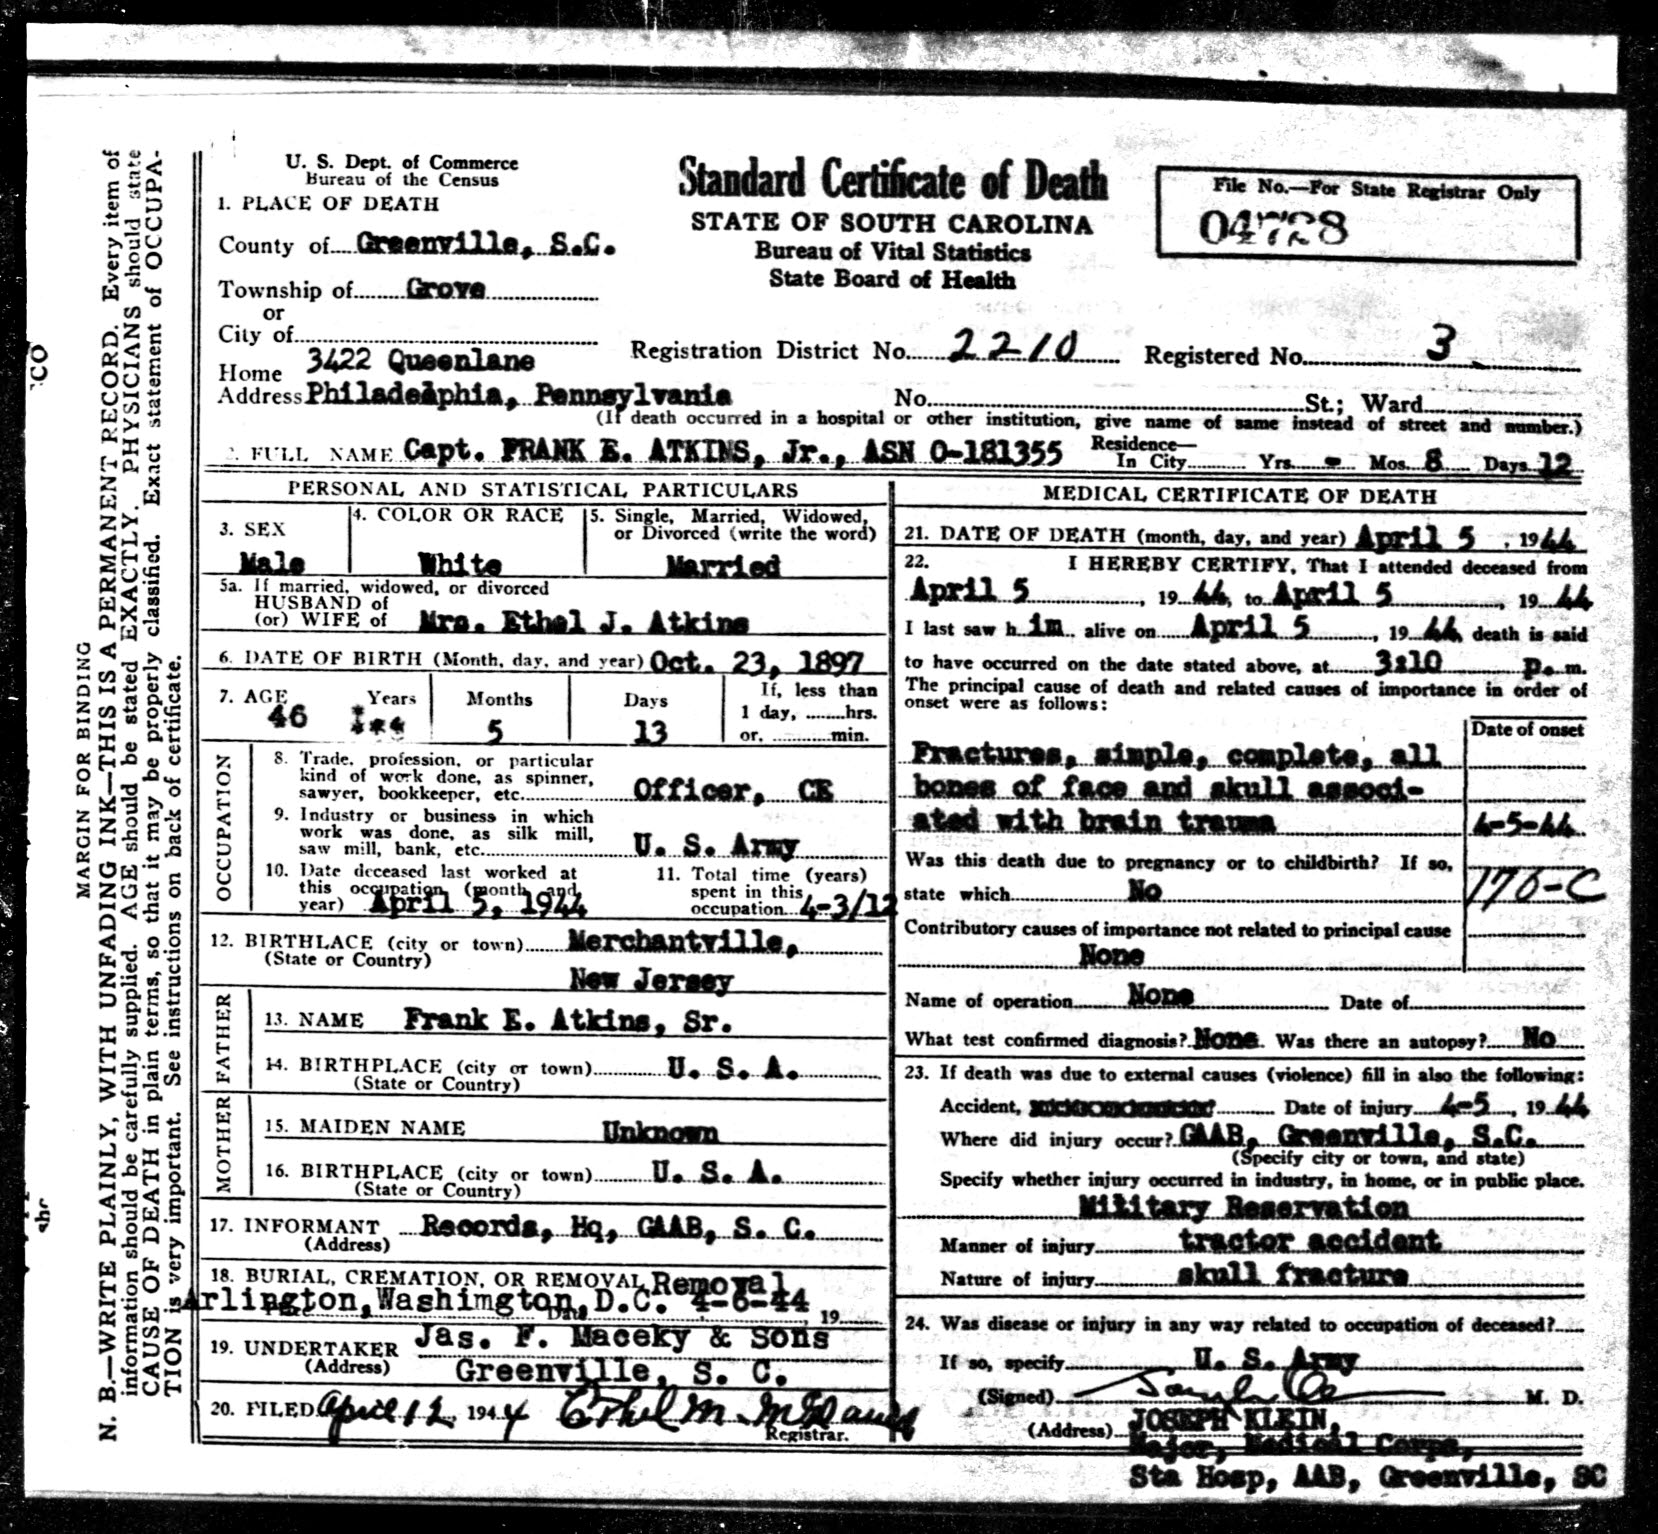 U. S. Dept. of Commerce
Bureau of the Census
Standard Certificate of Death
STATE OF SOUTH CAROLINA
Bureau of Vital Statistics
State Board of Health
File No.—For State Registrar Only
04728
1. PLACE OF DEATH
County of Greenville, S.C.
Township of Grove
or
City of
Home Address 3422 Queenlane
Philadelphia, Pennsylvania
Registration District No. 2210 Registered No. 3
No. St.; Ward
(If death occurred in a hospital or other institution, give name of same instead of street and number.)
2. FULL NAME Capt. FRANK E. ATKINS, Jr., ASN O-181355 Residence—
In City Yrs. - Mos. 8 Days 12
PERSONAL AND STATISTICAL PARTICULARS
3. SEX
Male
4. COLOR OR RACE
White
5. Single, Married, Widowed,
or Divorced (write the word)
Married
5a. If married, widowed, or divorced
HUSBAND of
(or) WIFE of Mrs. Ethel J. Atkins
6. DATE OF BIRTH (Month, day, and year) Oct. 23, 1897
7. AGE Years Months Days If, less than
46 5 13 1 day, hrs.
or, min.
OCCUPATION
8. Trade, profession, or particular
kind of work done, as spinner,
sawyer, bookkeeper, etc. Officer, CE
9. Industry or business in which
work was done, as silk mill,
saw mill, bank, etc. U. S. Army
10. Date deceased last worked at
this occupation (month and
year) April 5, 1944
11. Total time (years)
spent in this
occupation 4-3/12
12. BIRTHLACE (city or town) Merchantville,
(State or Country)
New Jersey
FATHER
13. NAME Frank E. Atkins, Sr.
14. BIRTHPLACE (city or town) U. S. A.
(State or Country)
MOTHER
15. MAIDEN NAME Unknown
16. BIRTHPLACE (city or town) U. S. A.
(State or Country)
17. INFORMANT Records, Hq, GAAB, S. C.
(Address)
18. BURIAL, CREMATION, OR REMOVAL Removal
Arlington, Washimgton, D.C. Date 4-6-44, 19
19. UNDERTAKER Jas. F. Maceky & Sons
(Address) Greenville, S. C.
20. FILED April 12, 1944 Ethel M.
Registrar.
MEDICAL CERTIFICATE OF DEATH
21. DATE OF DEATH (month, day, and year) April 5, 1944
22. I HEREBY CERTIFY, That I attended deceased from
April 5, 1944, to April 5, 1944
I last saw him alive on April 5, 1944, death is said
to have occurred on the date stated above, at 3:10 p. m.
The principal cause of death and related causes of importance in order of
onset were as follows:
Date of onset
Fractures, simple, complete, all
bones of face and skull associ-
ated with brain trauma 4-5-44
Was this death due to pregnancy or to childbirth? If so,
state which No
170-C
Contributory causes of importance not related to principal cause
None
Name of operation None Date of
What test confirmed diagnosis? None Was there an autopsy? No
23. If death was due to external causes (violence) fill in also the following:
Accident, Date of injury 4-5, 1944
Where did injury occur? GAAB, Greenville, S.C.
(Specify city or town, and state)
Specify whether injury occurred in industry, in home, or in public place.
Military Reservation
Manner of injury tractor accident
Nature of injury skull fracture
24. Was disease or injury in any way related to occupation of deceased?
If so, specify U. S. Army
(Signed) M. D.
(Address) JOSEPH KLEIN,
Major, Medical Corps,
Sta Hosp, AAB, Greenville, SC
MARGIN FOR BINDING
N. B.—WRITE PLAINLY, WITH UNFADING INK—THIS IS A PERMANENT RECORD. Every item of
information should be carefully supplied. AGE should be stated EXACTLY. PHYSICIANS should state
CAUSE OF DEATH in plain terms, so that it may be properly classified. Exact statement of OCCUPA-
TION is very important. See instructions on back of certificate.